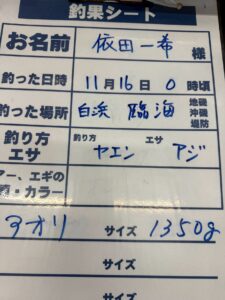 釣果シート
お名前 依田一希 様
釣った日時 11月16日 0時頃
釣った場所 白浜 臨海 地磯 沖磯 堤防
釣り方 エサ 釣り方 ヤエン エサ アジ
アー、エギの
・カラー
アオリ サイズ 1350g
サイズ
サイズ